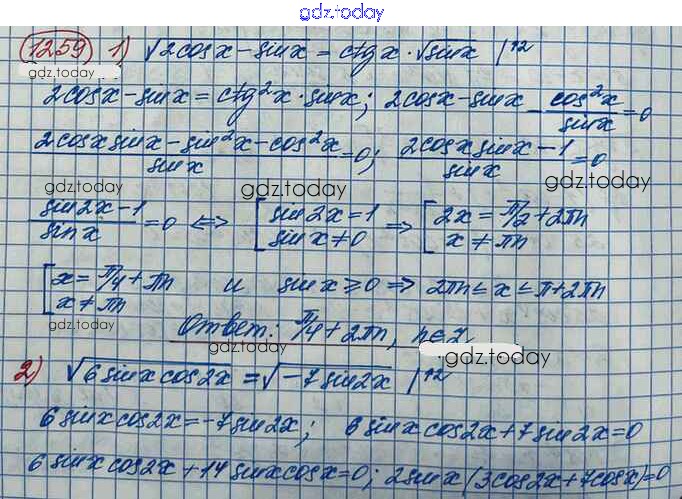 gdz.today
1259 1) √2cosx - sinx = ctgx · √sinx |^2
gdz.today
2cosx - sinx = ctg²x · sinx; 2cosx - sinx - cos²x/sinx = 0
(2cosx sinx - sin²x - cos²x)/sinx = 0; (2cosx sinx - 1)/sinx = 0
gdz.today gdz.today gdz.today
(sin2x - 1)/sinx = 0 ⇔ [ sin2x = 1 ⇒ [ 2x = π/2 + 2πn
sinx ≠ 0 x ≠ πn
[ x = π/4 + πn и sinx ≥ 0 ⇒ 2πn ≤ x ≤ π + 2πn
x ≠ πn
gdz.today
Ответ: π/4 + 2πn, n ∈ Z
gdz.today gdz.today
2) √6sinxcos2x = √-7sin2x |^2
6sinxcos2x = -7sin2x; 6sinxcos2x + 7sin2x = 0
6sinxcos2x + 14sinxcosx = 0; 2sinx(3cos2x + 7cosx) = 0
gdz.today gdz.today